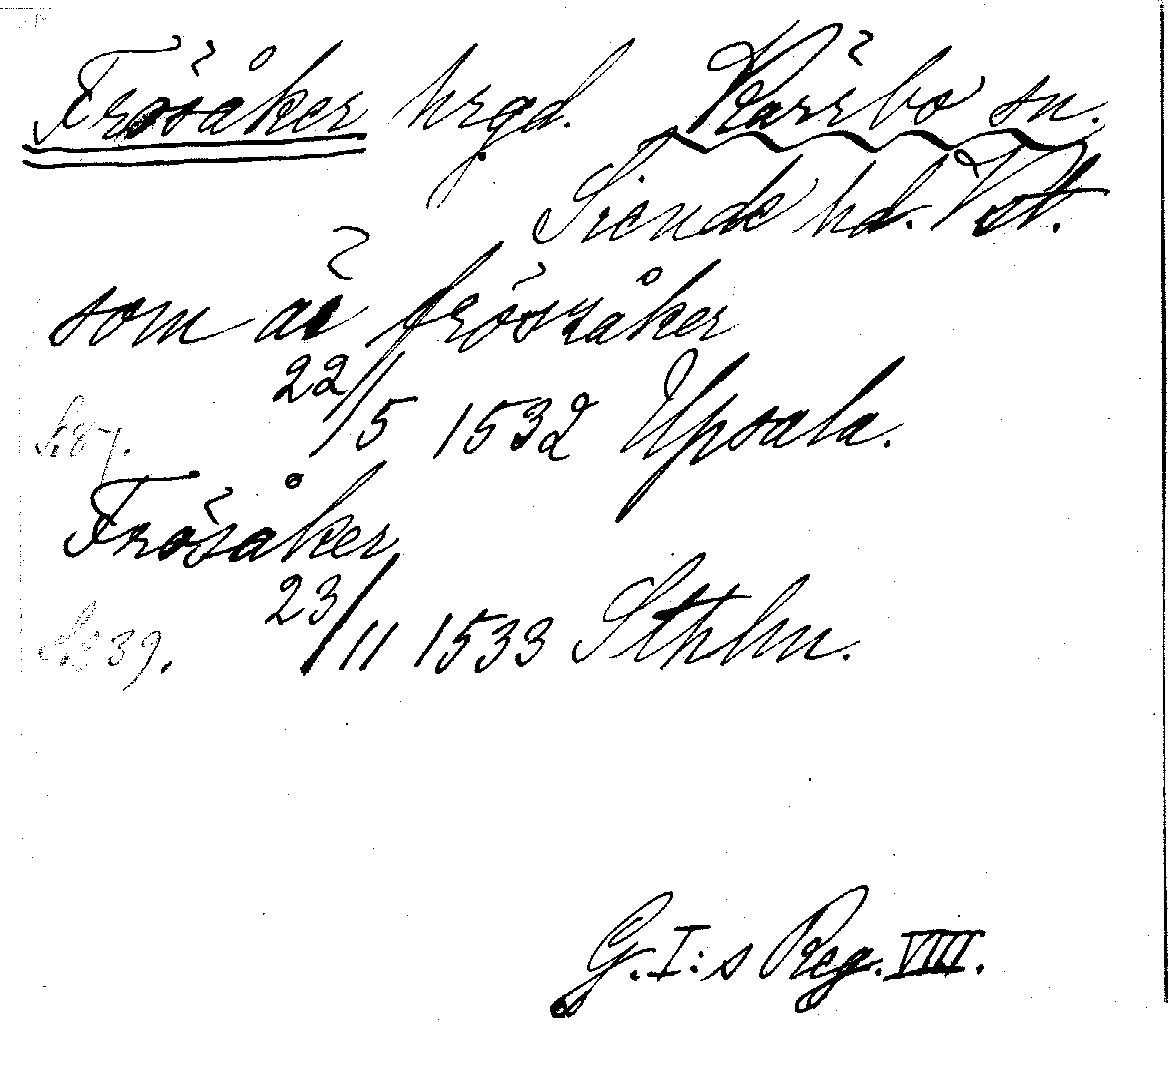 Frösåker hrgd. Kärrbo sn.
Siende hd. Vst.
som är fröszåker
22/5 1532 Upsala.
s. 87.
Frösåker
23/11 1533 Sthlm.
s. 239.
G. I:s Reg. VIII.